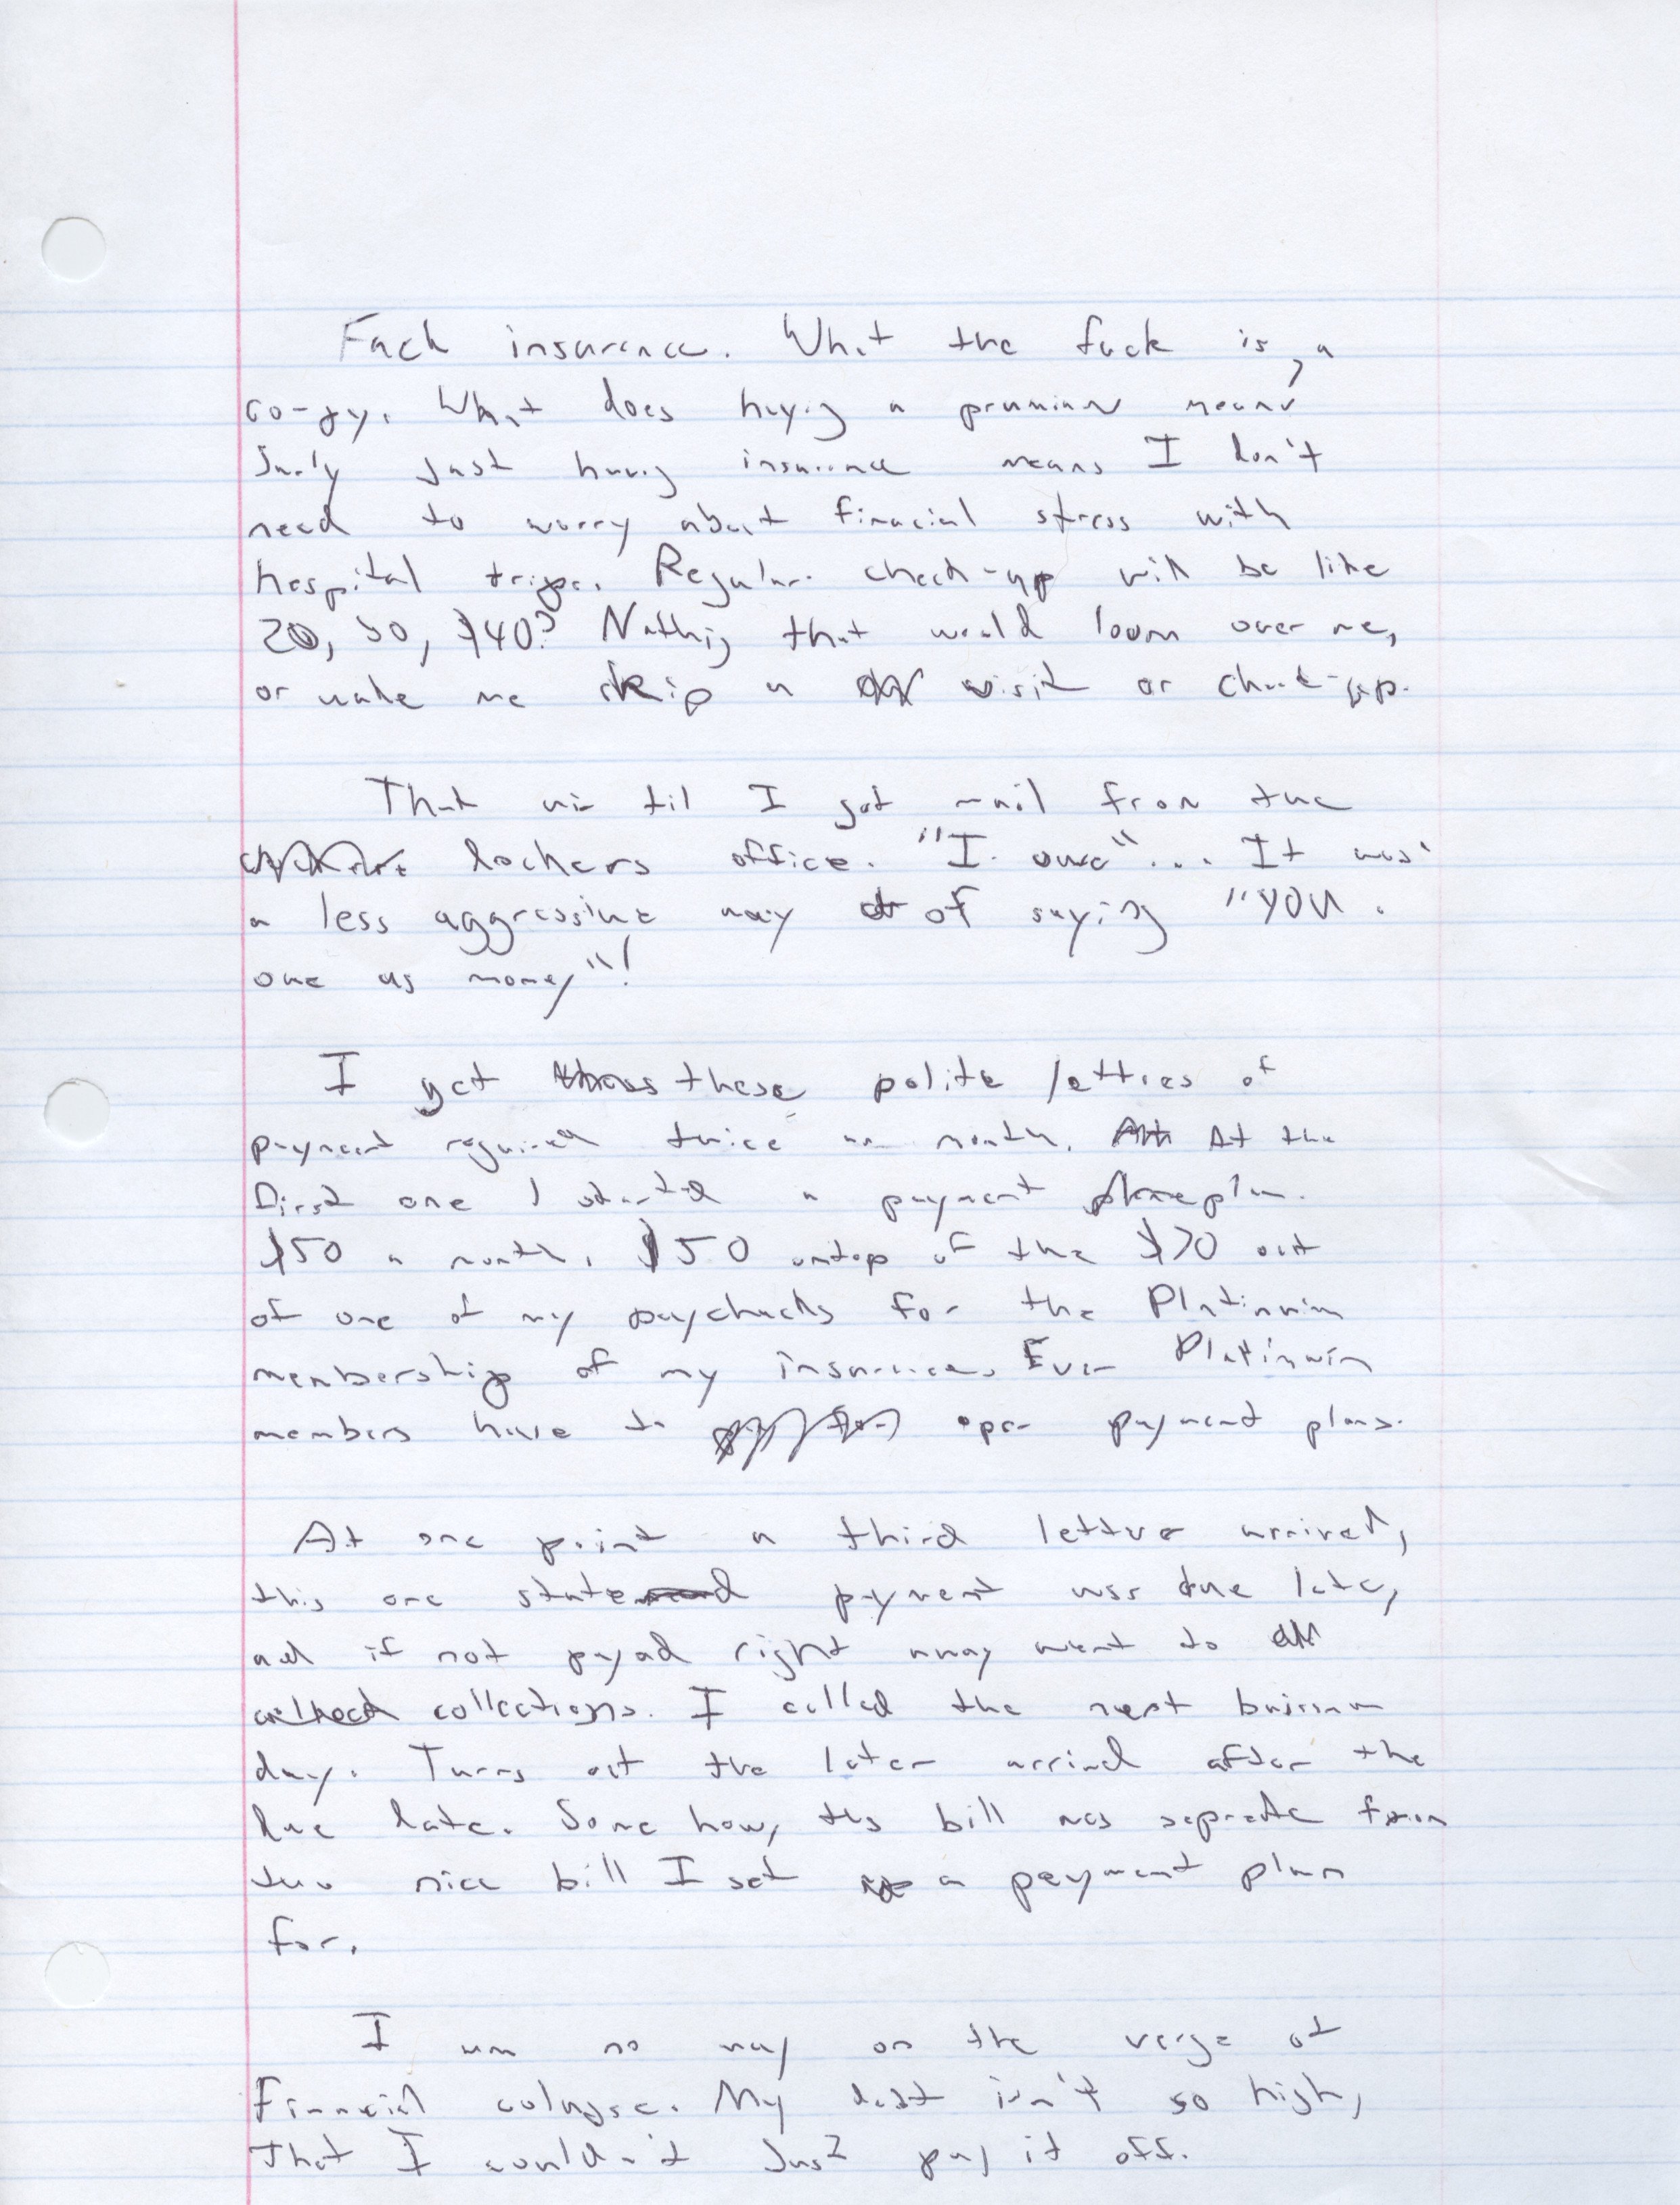 Fuck insurence. What the fuck is a
co-pay. What does having a premium mean?
Surly just having insurance means I don't
need to worry about finacial stress with
hospital trips. Regular check-up will be like
20, 30, $40? Nothing that would loom over me,
or make me skip a visit or check-up.
That was til I got mail from the
dockers office. "I owe"... It was
a less aggressive way of saying "YOU
owe us money"!
I get these polite lettres of
payment required twice a month. At the
first one I started a payment plan.
$50 a month. $50 ontop of the $70 out
of one of my paychecks for the Platinum
membership of my insurance. Even Platinum
members have to open payment plans.
At one point a third letter arrived,
this one stated payment was due late,
and if not payed right away went to
collections. I called the next buisness
day. Turns out the later arrived after the
due date. Some how, this bill was seprate from
the nice bill I set a payment plan
for.
I am no way on the verge of
Financial colapse. My debt isn't so high,
that I couldn't just pay it off.